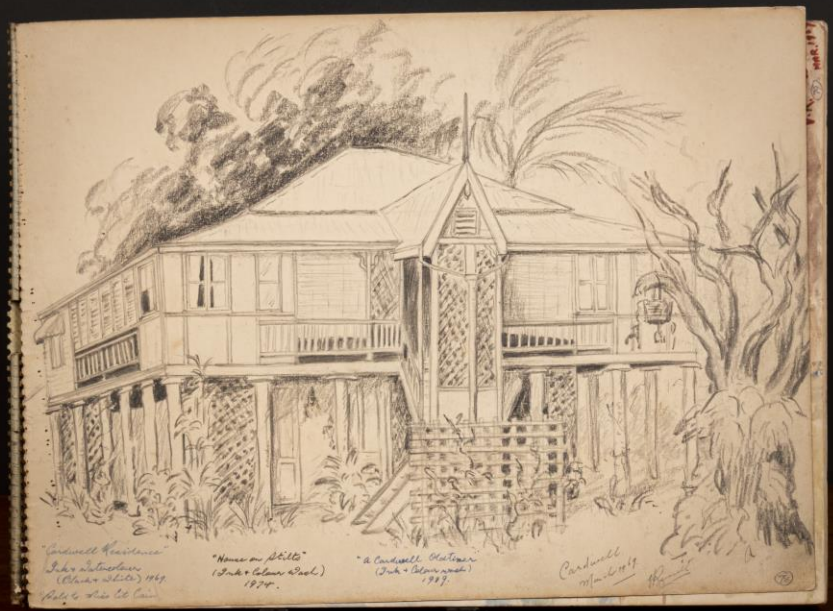 "Cardwell Residence"
Ink & Watercolour
(Black & White) 1969.
"House on Stilts"
(Ink & Colour Wash)
1974.
"A Cardwell Oldtimer
(Ink & Colour wash)
1989.
Cardwell
March 1969.
76
MAR. 19